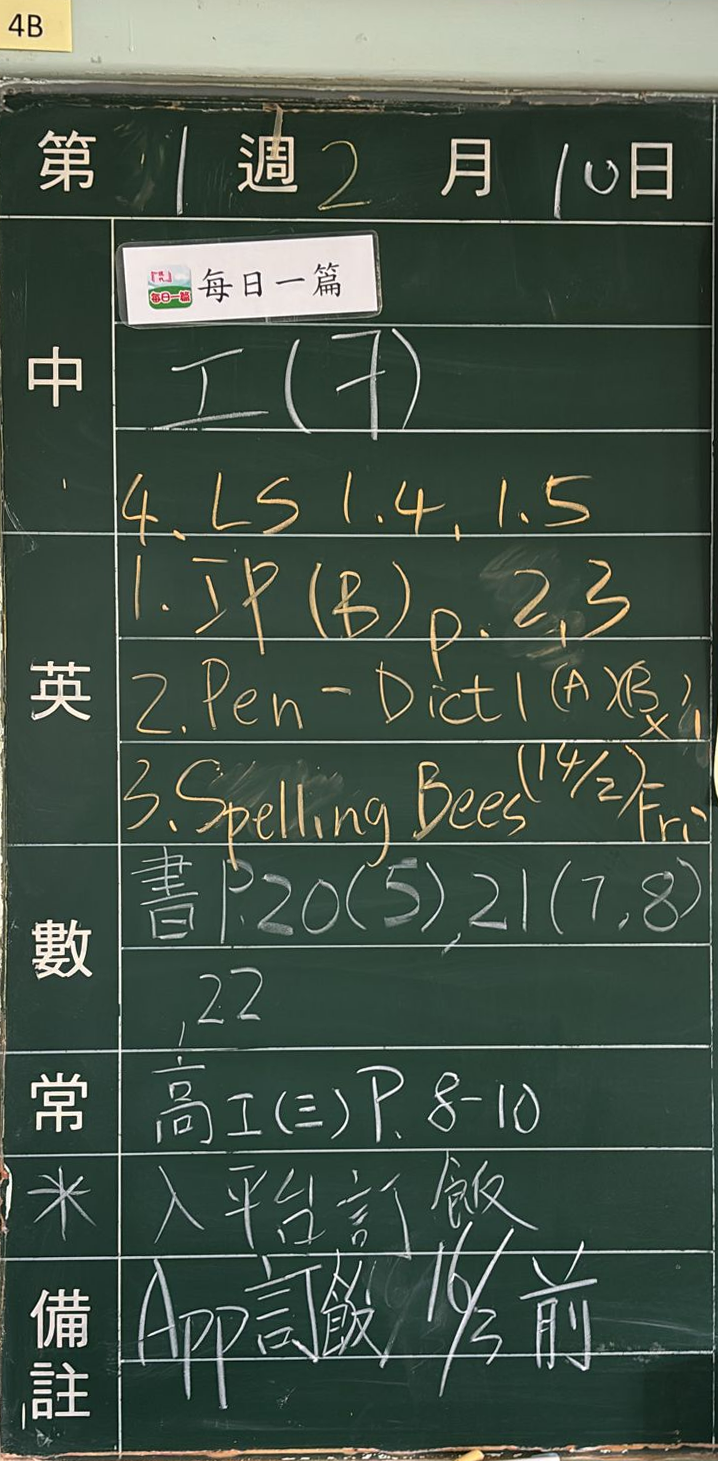 4B
第 1 週 2 月 10 日
中
每日一篇
每日一篇
工(7)
4. LS 1.4, 1.5
英
1. IP (B) p. 2,3
2. Pen-Dict 1 (A)(B)
3. Spelling Bees (14/2) Fri
數
書 P.20(5), 21(7,8)
,22
常
高工(三) P. 8-10
入平台訂飯
備註
App訂飯 16/3 前